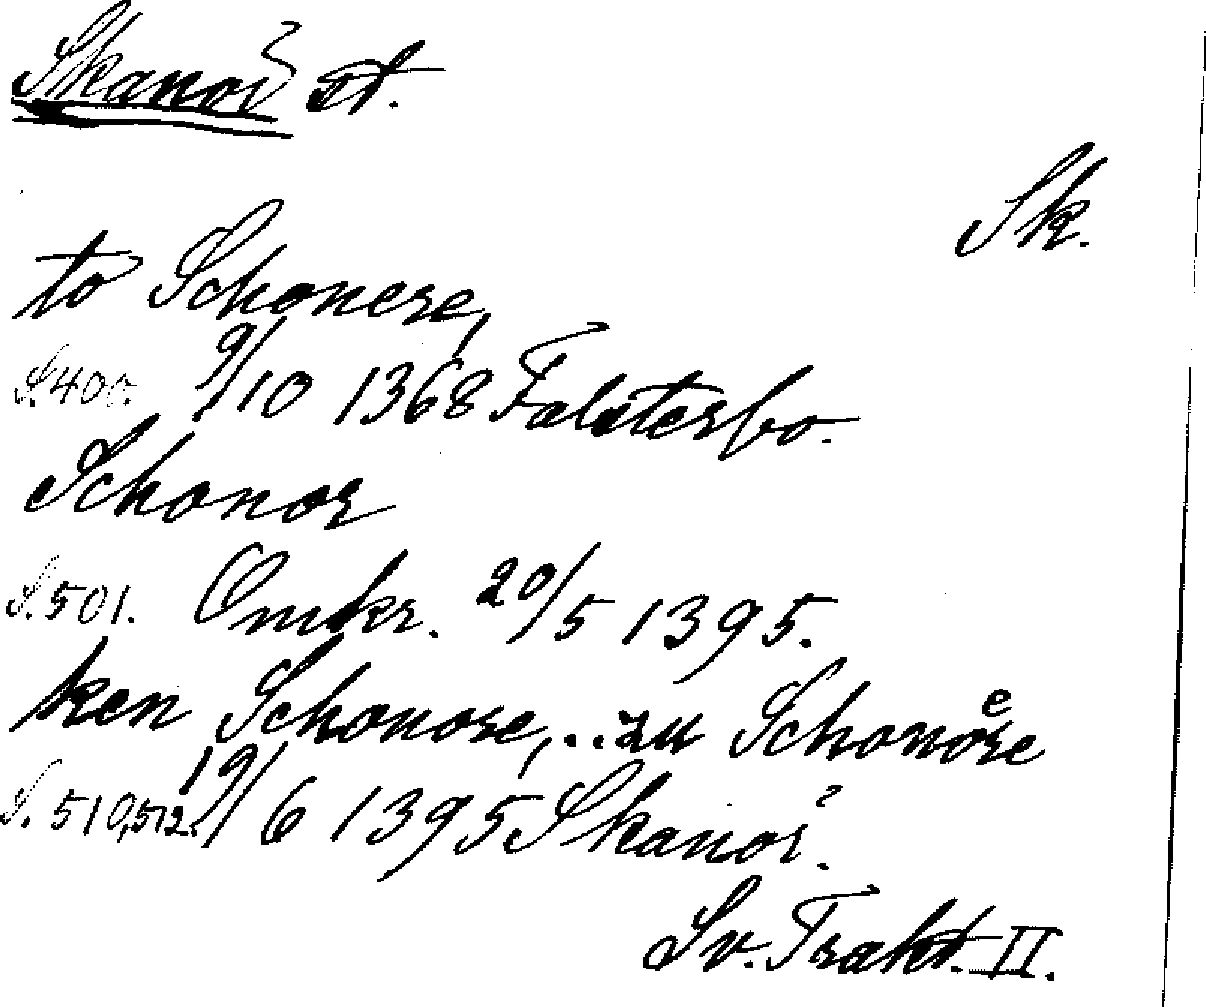 Skanör st.
Sk.
to Schonere,
S. 400. 9/10 1368 Falsterbo.
Schonor
S. 501. Omkr. 20/5 1395.
ken Schonore, .. zu Schonoͤre
S. 510, 512. 19/6 1395 Skanör.
Sv. Trakt. II.